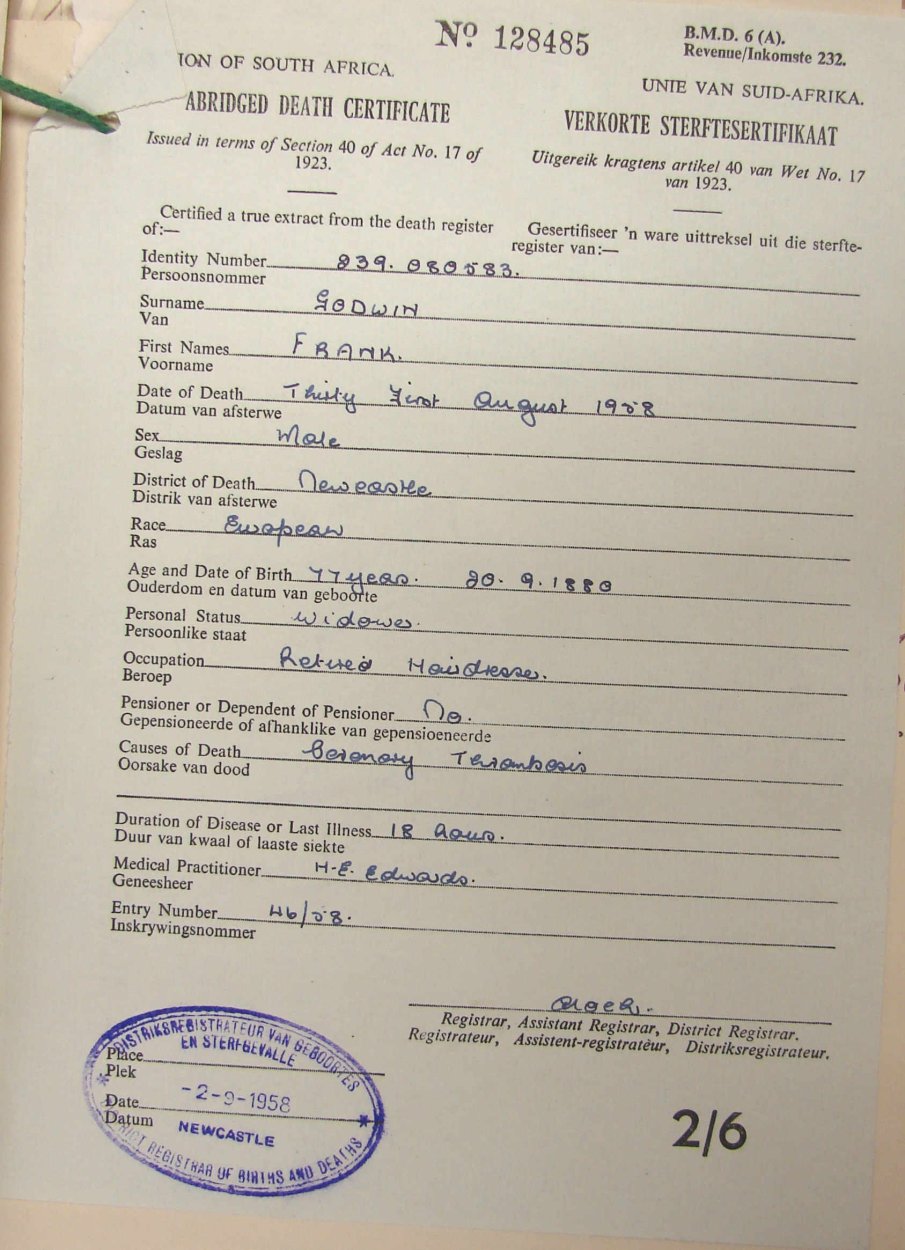 Nº 128485
B.M.D. 6 (A).
Revenue/Inkomste 232.
ION OF SOUTH AFRICA.
ABRIDGED DEATH CERTIFICATE
Issued in terms of Section 40 of Act No. 17 of
1923.
UNIE VAN SUID-AFRIKA.
VERKORTE STERFTESERTIFIKAAT
Uitgereik kragtens artikel 40 van Wet No. 17
van 1923.
Certified a true extract from the death register
of:—
Gesertifiseer 'n ware uittreksel uit die sterfte-
register van:—
Identity Number 239. 080583.
Persoonsnommer
Surname GODWIN
Van
First Names FRANK.
Voorname
Date of Death Thirty First August 1958
Datum van afsterwe
Sex Male
Geslag
District of Death Newcastle
Distrik van afsterwe
Race European
Ras
Age and Date of Birth 77 years. 20.9.1880
Ouderdom en datum van geboorte
Personal Status Widower.
Persoonlike staat
Occupation Retired Hairdresser.
Beroep
Pensioner or Dependent of Pensioner No.
Gepensioneerde of afhanklike van gepensioeneerde
Causes of Death Coronary Thrombosis
Oorsake van dood
Duration of Disease or Last Illness 18 hours.
Duur van kwaal of laaste siekte
Medical Practitioner H.E. Edwards.
Geneesheer
Entry Number 46/58.
Inskrywingsnommer
Registrar, Assistant Registrar, District Registrar.
Registrateur, Assistent-registratêur, Distriksregistrateur.
DISTRIKSREGISTRATEUR VAN GEBOORTES
EN STERFGEVALLE
Place
Plek
Date -2-9-1958
Datum NEWCASTLE
RICT REGISTRAR OF BIRTHS AND DEATHS
2/6